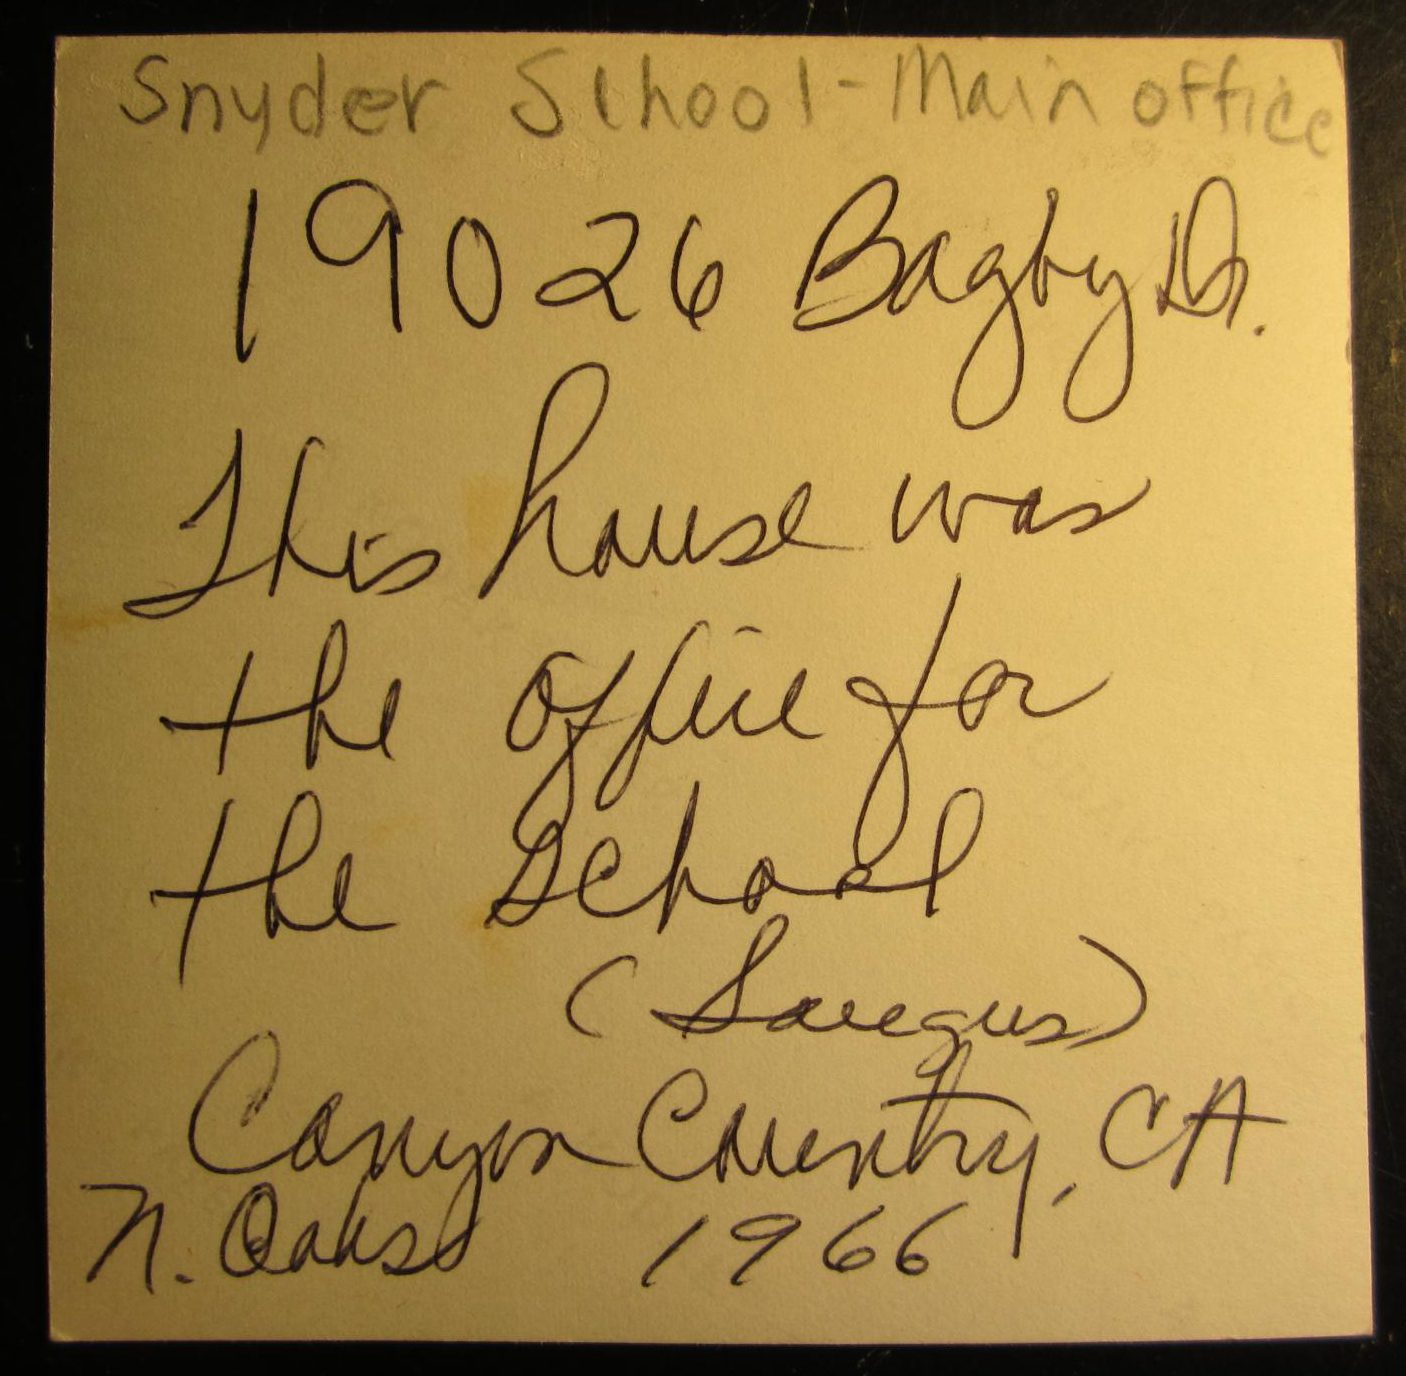 Snyder School - Main office
19026 Bagby Dr.
This house was
the office for
the School
(Saugus)
Canyon Country, CA
N. Oaks 1966